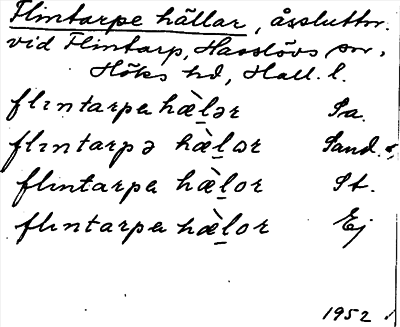 Flintarpe hällar, åssluttn.
vid Flintarp, Hasslövs sn,
Höks hd, Hall. l.
flıntarpa hæ̀l̠ər Sa.
flıntarpə hæ̀l̠ər Sand.
flıntarpa hæ̀l̠or St.
flıntarpa hæ̀l̠or Ej
1952